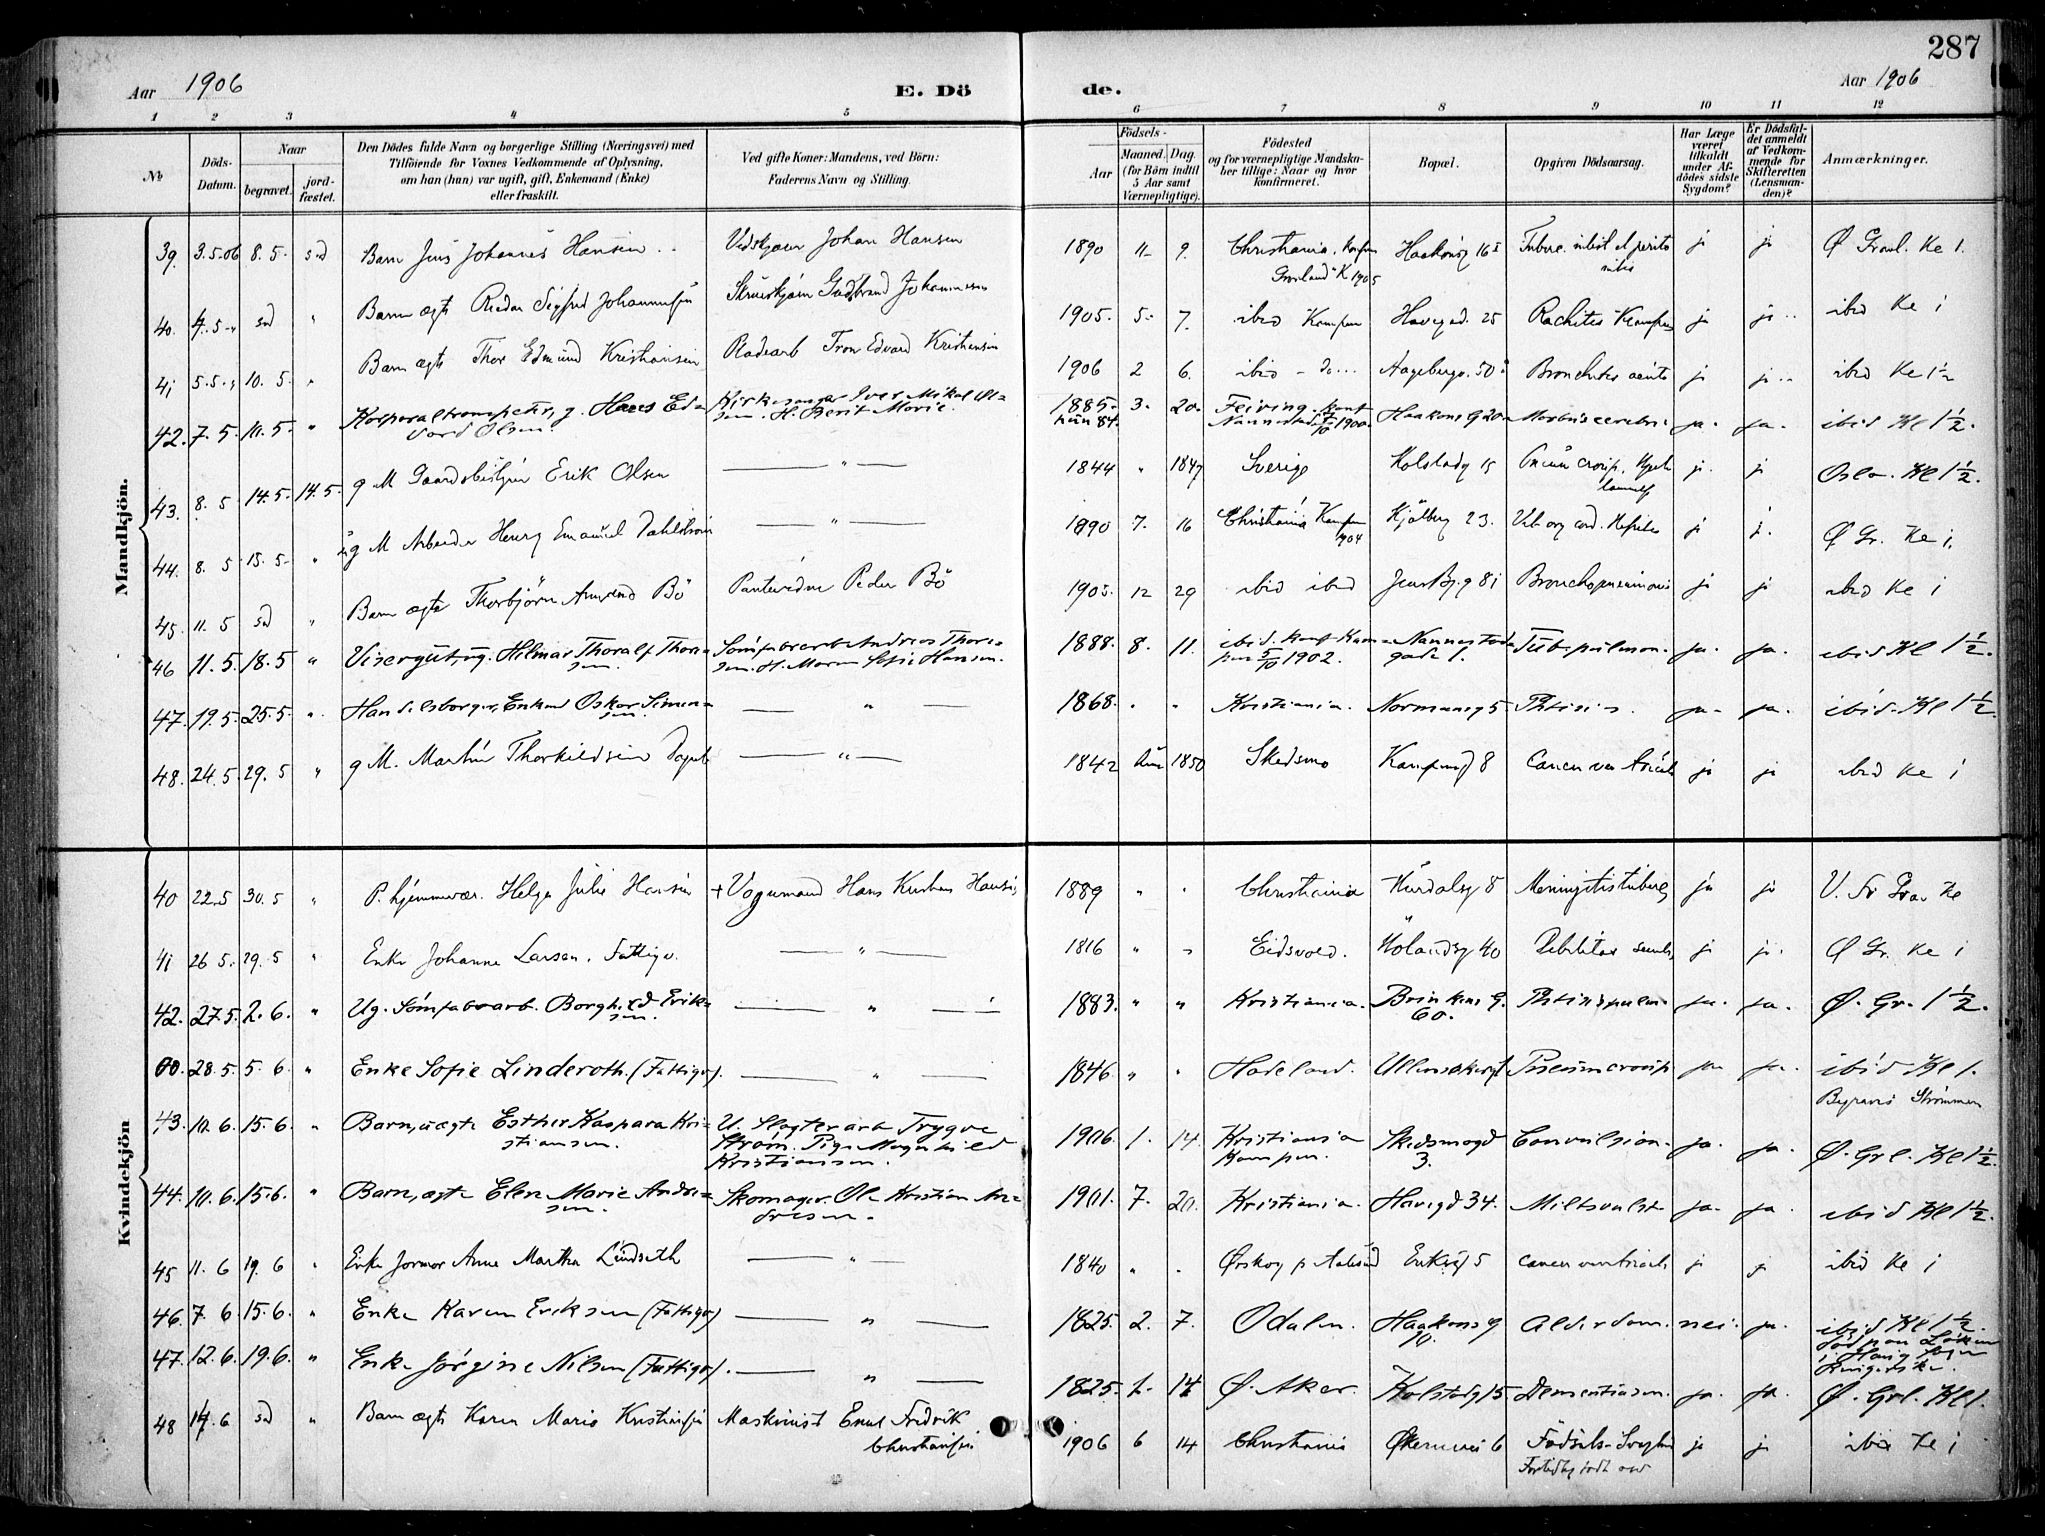 287
Aar 1906
E. Dö
de.
Aar 1906
1 2 3 4 5 6 7 8 9 10 11 12
№
Döds-
Datum.
Naar
begravet.
jord-
fæstet.
Den Dödes fulde Navn og borgerlige Stilling (Næringsvei) med
Tilföiende for Voxnes Vedkommende af Oplysning,
om han (hun) var ugift, gift, Enkemand (Enke)
eller fraskilt.
Ved gifte Koner: Mandens, ved Börn:
Faderens Navn og Stilling.
Födsels-
Aar
Maaned. Dag.
(for Börn indtil
5 Aar samt
Værnepligtige).
Födested
og for værnepligtige Mandska-
ber tillige: Naar og hvor
konfirmeret.
Bopæl.
Opgiven Dödsaarsag.
Har Læge
været
tilkaldt
under Af-
dödes sidste
Sygdom?
Er Dödsfal-
det anmeldt
af Vedkom-
mende for
Skifteretten
(Lensman-
den)?
Anmærkninger.
Mandkjön.
39. 3.5.06 8.5. Barn Jens Johannes Hansen Johan Hansen 1890 11 9. Christiania. Haakonsg 16 ja ja Ø Grønl. Kl 1.
Grønland K 1905
40. 4.5 sd " Barn ægte Reidar Sigfred Johannessen Gudbrand Johannesen 1905. 5. 7. ibid Kampen Havegad. 25 Rachites ja ja ibid Kl 1
41 5.5. 10.5. " Barn ægte Thor Edmund Kristiansen Pladearb Tron Edvard Kristiansen 1906 2 6. ibid - do Hagebergv. 50 Bronchites ja ja ibid Kl 1½
42. 7.5. 10.5. " Korporaltrompeter, g. Hans Ed=
vard Olsen. Kirkesanger Iver Mikal Ol=
sen. H. Berit Marie. 1885. 3. 20. Feiring. konf
Nannestad 1900. Haakons g 20 Morbus cerebri ja. ja. ibid Kl 1½.
43. 8.5 14.5. 14.5. g M Gaardsbestyrer Erik Olsen — " — 1844 " 1847 Sverige Kolstadg 15 ja. ja Oslo. Kl 1½.
44. 8.5 15.5. " g M Arbeider Henry Emanuel Dahlstrøm — " — 1890 7. 16 Christiania Kampen
1904 Kjølberg 23. ja ja. Ø Gr. Kl 1.
45. 11.5 sd " Barn ægte Thorbjørn Amund Bö Peder Bö 1905. 12 29 ibid ibid Jens Bj. g 81 Bronchopneumonie ja ja ibid Kl 1
46 11.5. 18.5 " Visergut, ug. Hilmar Thoralf Thor=
sen. Andreas Thor=
sen. H. Maren Sofie Hansen. 1888. 8. 11. ibid. konf Kam=
pen 5/10 1902. Nannestads
gade 1. Tub. pulmon. ja. ja. ibid Kl 1½.
47. 19.5. 25.5. " Handelsborger, Enkem Oskar Simen=
sen. — " — 1868. " " Kristiania. Normannsg 5. Phtisis. ja. ja. ibid. Kl 1½.
48. 24.5 29.5 " g M. Martin Thorkildsen Dagarb — " — 1842 1850 Skedsmo Kampensg 8 Cancer ventriculi ja ja ibid Kl 1
Kvindekjön
40 22.5 30.5 " P. hjemmevær. Helga Julie Hansen + Vognmand Hans Hansen 1889 " " Christiania Hurdalsg 8 Meningit. tuberc. ja ja V. Fr Grav. Kl
41 26.5. 29.5 " Enke Johanne Larsen. Fattigv. — " — 1816 " " Eidsvold. Hølandsg 40 Debilitas senil. ja ja. Ø Gr. Kl 1
42. 27.5. 2.6. " Ug. Sømfabrarb. Borghild Erik=
sen. — " — 1883. " " Kristiania. Brinkens g.
60. Phtisis pulm. ja. ja. Ø. Gr. 1½.
00. 28.5. 5.6. " Enke Sofie Linderoth. (Fattigv). — " — 1846. " " Hadeland. Ullensakergt Pneum croup. ja ja. ibid Kl 1.
Begraves Strømmen
43. 10.6. 15.6. " Barn, uægte Esther Kaspara Kri=
stiansen. U. Slagterarb Trygve
Strøm. Pige Magnhild
Kristiansen. 1906. 1. 14. Kristiania
Kampen. Skedsmogd
3. Convulsion. ja. ja. Ø. Grl. Kl 1½.
44. 10.6. 15.6. " Barn, ægte Elen Marie Andre=
sen. Skomager. Ole Kristian An=
dresen. 1901. 7. 20. Kristiania. Havegd 34. Miltsvulst. ja. ja. ibid Kl 1½.
45 11.6 19.6 " Enke Jormor Anne Martha Lindseth — " — 1840 " " Ørskog p Aalesund Eriksg 5 Cancer ventriculi ja ja ibid Kl 1
46. 7.6. 15.6. " Enke Karen Eriksen (Fattigv) — " — 1825. 2. 7. Odalen. Haakons g Alderdom. nei. ja. ibid Kl 1½
47. 12.6. 19.6. " Enke Jørgine Nilsen (Fattigv). — " — 1825. 1. 14. Ø. Aker. Kolstadg 15 Dementia sen. ja. ja. Ø. Grl. Kl 1.
48 14.6 sd " Barn ægte Karen Marie Kristiansen Maskinist Emil Fredrik
Christiansen 1906 6 14 Christiania Økernvei 6 Födsels-Svaghed ja ja ibid Kl 1